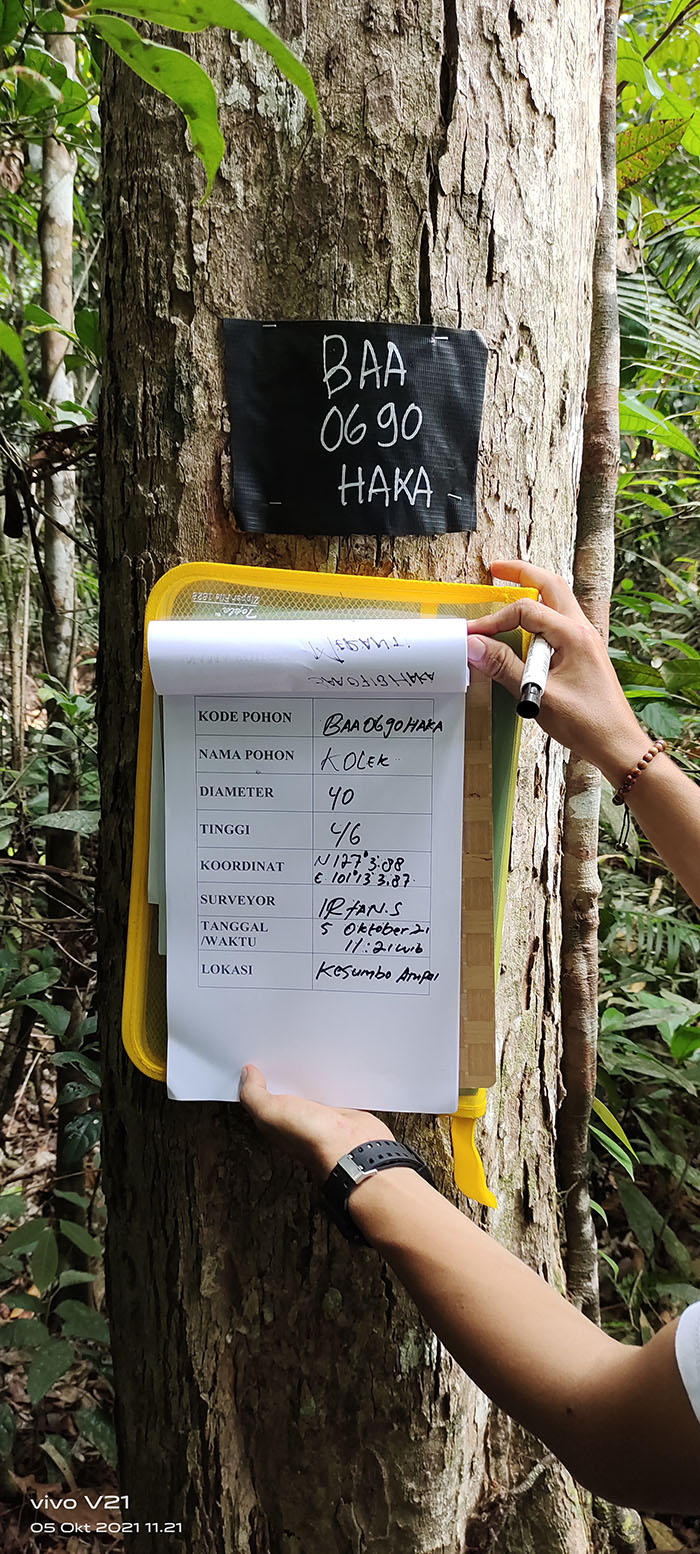 BAA
0690
HAKA
KODE POHON BAA0690HAKA
NAMA POHON KOLEK
DIAMETER 40
TINGGI 46
KOORDINAT N 127°3.88
E 101°13'3.87
SURVEYOR IRFAN.S
TANGGAL 5 Oktober 21
/WAKTU 11:21 wib
LOKASI Kesumbo Ampai
vivo V21
05 Okt 2021 11.21